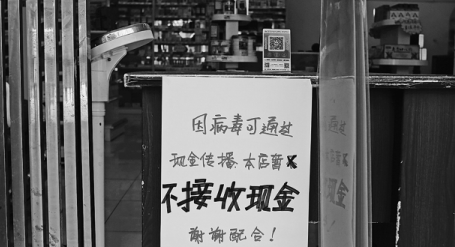 因病毒可通过
现金传播.本店暂
不接收现金
谢谢配合!